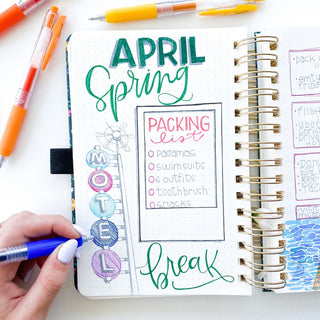 APRIL
Spring
PACKING
list
pajamas
swimsuits
6 outfits
toothbrush
snacks
MOTEL
break